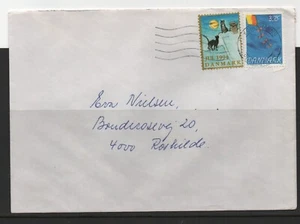 JUL 1995
DANMARK
3.75
DANMARK
Eva Nielsen,
Bondrosevej 20,
4000 Roskilde